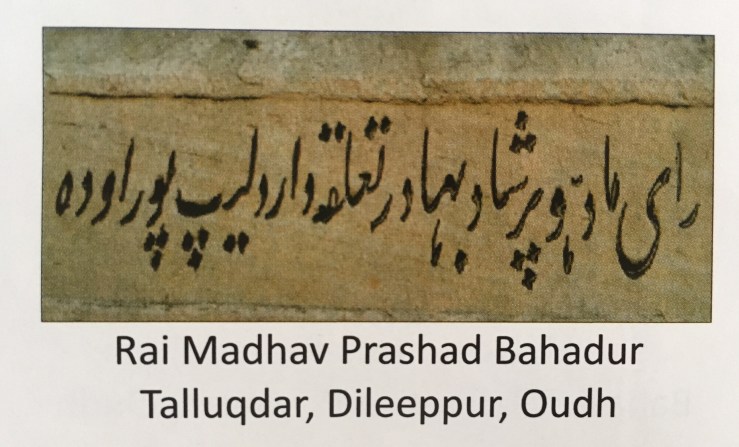 رای مادہو پرشاد بہادر تعلقہ دار دلیپ پور اودہ
Rai Madhav Prashad Bahadur
Talluqdar, Dileeppur, Oudh